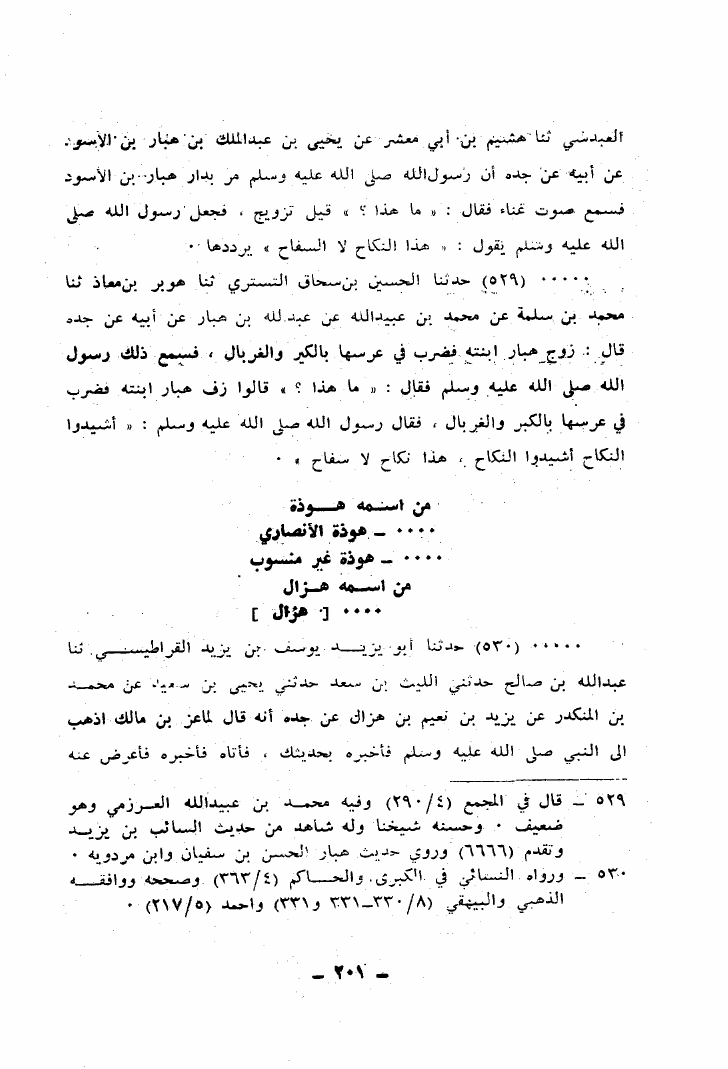 العبدسي ثنا هشيم بن أبي معشر عن يحيى بن عبدالملك بن هبار بن الأسود
عن أبيه عن جده أن رسول الله صلى الله عليه وسلم مر بدار هبار بن الأسود
فسمع صوت غناء فقال : « ما هذا ؟ » قيل تزويج ، فجعل رسول الله صلى
الله عليه وسلم يقول : « هذا النكاح لا السفاح » يرددها ٠
٠٠٠٠٠ (٥٢٩) حدثنا الحسين بن سحاق التستري ثنا هوبر بن معاذ ثنا
محمد بن سلمة عن محمد بن عبيدالله عن عبدلله بن هبار عن أبيه عن جده
قال : زوج هبار ابنته فضرب في عرسها بالكبر والغربال ، فسمع ذلك رسول
الله صلى الله عليه وسلم فقال : « ما هذا ؟ » قالوا زف هبار ابنته فضرب
في عرسها بالكبر والغربال ، فقال رسول الله صلى الله عليه وسلم : « أشيدوا
النكاح أشيدوا النكاح ، هذا نكاح لا سفاح » ٠
من اسمه هوذة
٠٠٠٠ ـ هوذة الأنصاري
٠٠٠٠ ـ هوذة غير منسوب
من اسمه هزال
٠٠٠٠ [ هزال ]
٠٠٠٠٠ (٥٣٠) حدثنا أبو يزيد يوسف بن يزيد القراطيسي ثنا
عبدالله بن صالح حدثني الليث بن سعد حدثني يحيى بن سعيد عن محمد
بن المنكدر عن يزيد بن نعيم بن هزال عن جده أنه قال لماعز بن مالك اذهب
الى النبي صلى الله عليه وسلم فأخبره بحديثك ، فأتاه فأخبره فأعرض عنه
٥٢٩ ـ قال في المجمع (٢٩٠/٤) وفيه محمد بن عبيدالله العرزمي وهو
ضعيف ٠ وحسنه شيخنا وله شاهد من حديث السائب بن يزيد
وتقدم (٦٦٦٦) وروي حديث هبار الحسن بن سفيان وابن مردويه ٠
٥٣٠ ـ ورواه النسائي في الكبرى، والحاكم (٣٦٣/٤) وصححه ووافقه
الذهبي والبيهقي (٣٣٠/٨ـ٣٣١ و٣٣١) واحمد (٢١٧/٥) ٠
ـ ٢٠١ ـ